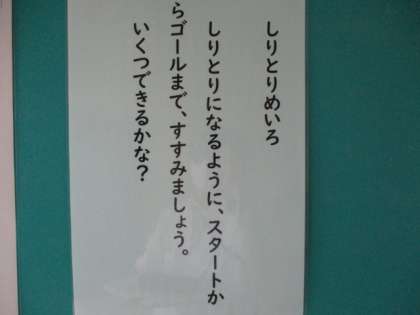 しりとりめいろ
しりとりになるように、スタートか
らゴールまで、すすみましょう。
いくつできるかな？